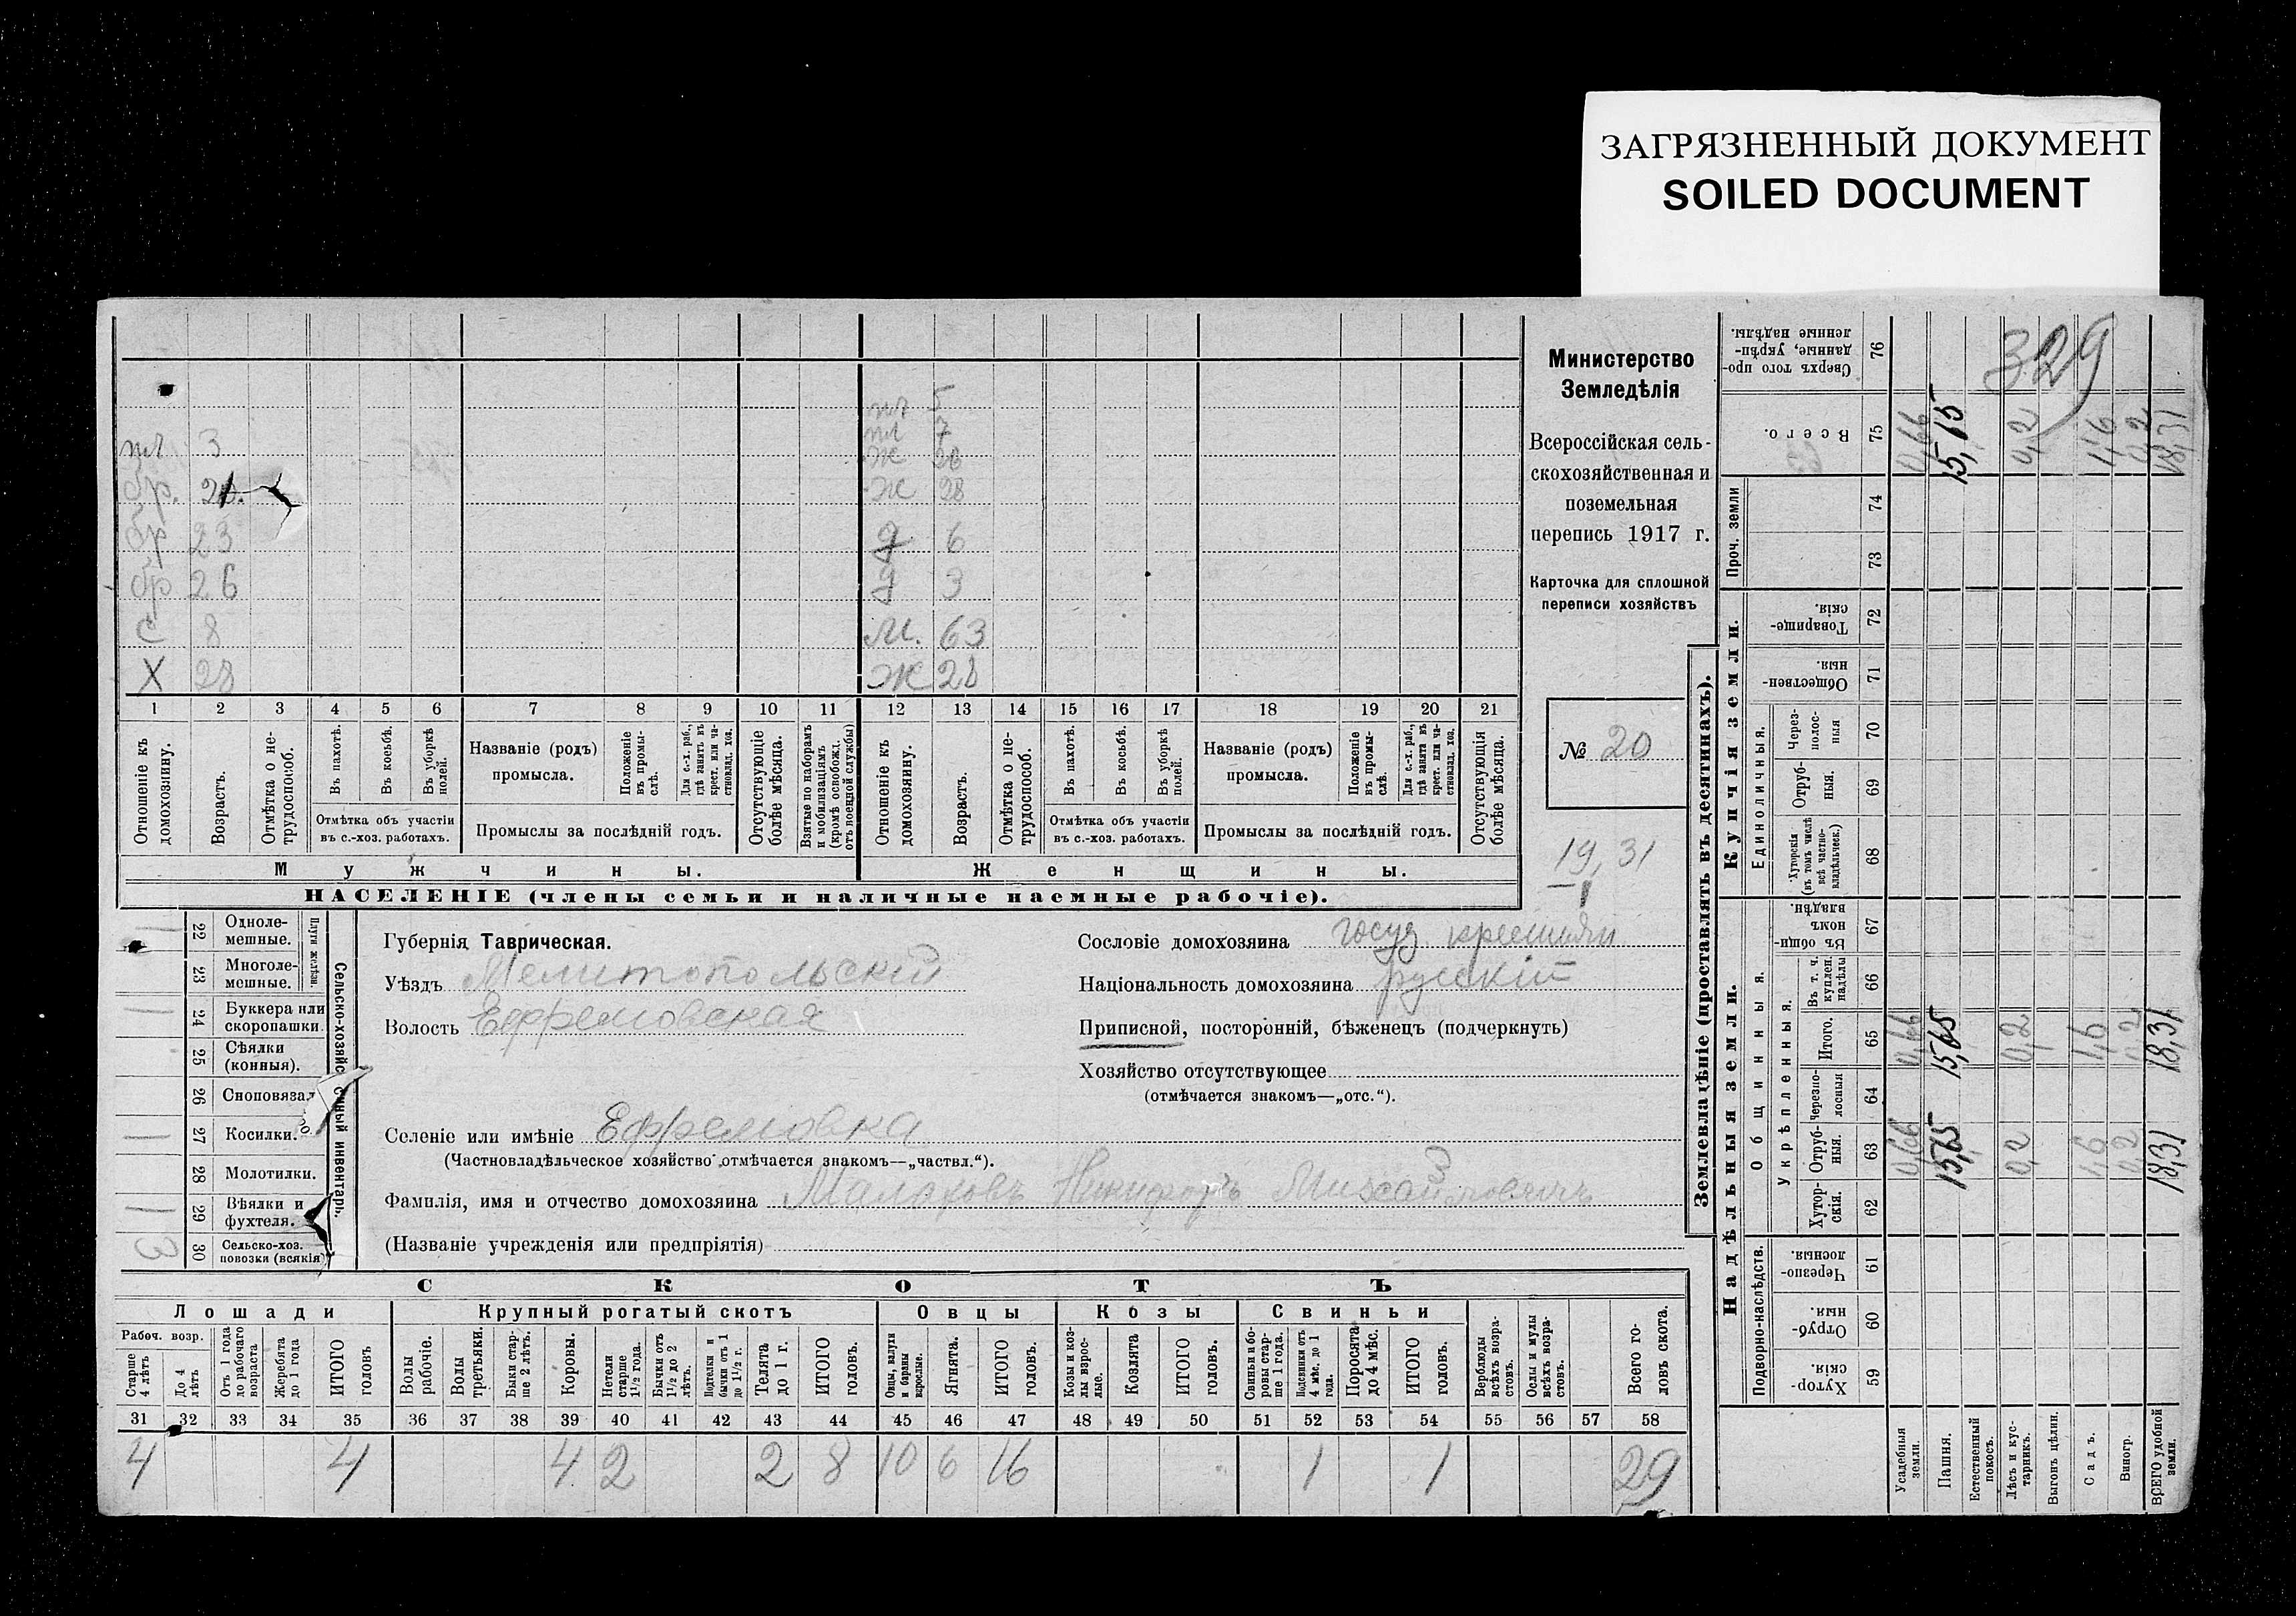 ЗАГРЯЗНЕННЫЙ ДОКУМЕНТ
SOILED DOCUMENT
Министерство
Земледѣлія
Всероссійская сель-
скохозяйственная и
поземельная
перепись 1917 г.
Карточка для сплошной
переписи хозяйствъ
№ 20
19,31
329
5
7
3
ж 26
ж 28
бр. 
бр 23
6
бр 26
3
с 8
м. 63
х 28
ж 28
1 2 3 4 5 6 7 8 9 10 11 12 13 14 15 16 17 18 19 20 21
Отношеніе къ домохозяину.
Возрастъ.
Отмѣтка о не-трудоспособ.
Въ пахотѣ.
Въ косьбѣ.
Въ уборкѣ полей.
Отмѣтка объ участіи
въ с.-хоз. работахъ.
Названіе (родъ)
промысла.
Положеніе въ промы-слѣ.
Для с.-х. раб., гдѣ занятъ въ крест. или ча-стновлад. хоз.
Промыслы за послѣдній годъ.
Отсутствующіе болѣе мѣсяца.
Взятые по наборамъ и мобилизаціямъ (кромѣ освобожд. отъ военной службы)
Отношеніе къ домохозяину.
Возрастъ.
Отмѣтка о не-трудоспособ.
Въ пахотѣ.
Въ косьбѣ.
Въ уборкѣ полей.
Отмѣтка объ участіи
въ с.-хоз. работахъ.
Названіе (родъ)
промысла.
Положеніе въ промы-слѣ.
Для с.-х. раб., гдѣ занята въ крест. или ча-стновлад. хоз.
Промыслы за послѣдній годъ.
Отсутствующія болѣе мѣсяца.
Мужчины.
Женщины.
НАСЕЛЕНІЕ (члены семьи и наличные наемные рабочіе).
Сельско-хозяйс ный инвентарь.
Плуги желѣзн.
22 Одноле-мешные. 1
23 Многоле-мешные.
24 Буккера или скоропашки. 1
25 Сѣялки (конныя).
26 Сноповязал
27 Косилки. 1
28 Молотилки.
29 Вѣялки и фухтеля. 1
30 Сельско-хоз. повозки (всякія) 3
Губернія Таврическая.
Уѣздъ Мелитопольскій
Волость Ефремовская
Селеніе или имѣніе Ефремовка
(Частновладѣльческое хозяйство отмѣчается знакомъ—„частвл.“).
Фамилія, имя и отчество домохозяина Малаховъ Никифоръ Михайловичъ
(Названіе учрежденія или предпріятія)
Сословіе домохозяина госуд. крестьян
Національность домохозяина русскій
Приписной, посторонній, бѣженецъ (подчеркнуть)
Хозяйство отсутствующее
(отмѣчается знакомъ—„отс.“).
СКОТЪ
Лошади
Крупный рогатый скотъ
Овцы
Козы
Свиньи
Рабоч. возр.
Старше 4 лѣтъ
До 4 лѣтъ
Отъ 1 года до рабочаго возраста
Жеребята до 1 года
ИТОГО головъ
Волы рабочіе.
Волы третьяки.
Быки стар-ше 2 лѣтъ.
Коровы.
Нетели старше 1½ года.
Бычки отъ 1½ до 2 лѣтъ.
Подтелки и бычки отъ 1 до 1½ г.
Телята до 1 г.
ИТОГО головъ.
Овцы, валухи и бараны взрослые.
Ягнята.
ИТОГО головъ.
Козы и коз-лы взрос-лые.
Козлята
ИТОГО головъ.
Свиньи и бо-ровы стар-ше 1 года.
Подсвинки отъ 4 мѣс. до 1 года.
Поросята до 4 мѣс.
ИТОГО головъ.
Верблюды всѣхъ возра-стовъ.
Ослы и мулы всѣхъ возра-стовъ.
Всего го-ловъ скота.
31 32 33 34 35 36 37 38 39 40 41 42 43 44 45 46 47 48 49 50 51 52 53 54 55 56 57 58
4 4 4 2 2 8 10 6 16 1 1 29
Землевладѣніе (проставлять въ десятинахъ).
Надѣльныя земли.
Купчія земли.
Проч. земли
Подворно-наслѣдств.
Общинныя.
Укрѣпленныя.
Единоличныя.
Сверхъ того про-данные, укрѣп-ленные надѣлы. 76
Всего. 75
74
73
Товарище-скія. 72
Обществен-ныя. 71
Через-полос-ныя 70
Отруб-ныя. 69
Хуторскія (въ томъ числѣ всѣ частно-владѣльческ.) 68
Въ общи-номъ владѣн. 67
Въ т. ч. куплен. надѣлы 66
Итого. 65
Черезпо-лосныя 64
Отруб-ныя. 63
Хутор-скія. 62
Черезпо-лосныя. 61
Отруб-ныя. 60
Хутор-скія. 59
Усадебныя земли.
Пашня.
Естественный покосъ.
Лѣсъ и кус-тарникъ.
Выгонъ цѣлин.
Садъ.
Виногр.
ВСЕГО удобной земли.
0,66 15,65 0,2 1,6 0,2 18,31
0,66 15,65 0,2 1,6 0,2 18,31
0,66 15,65 0,2 1,6 0,2 18,31